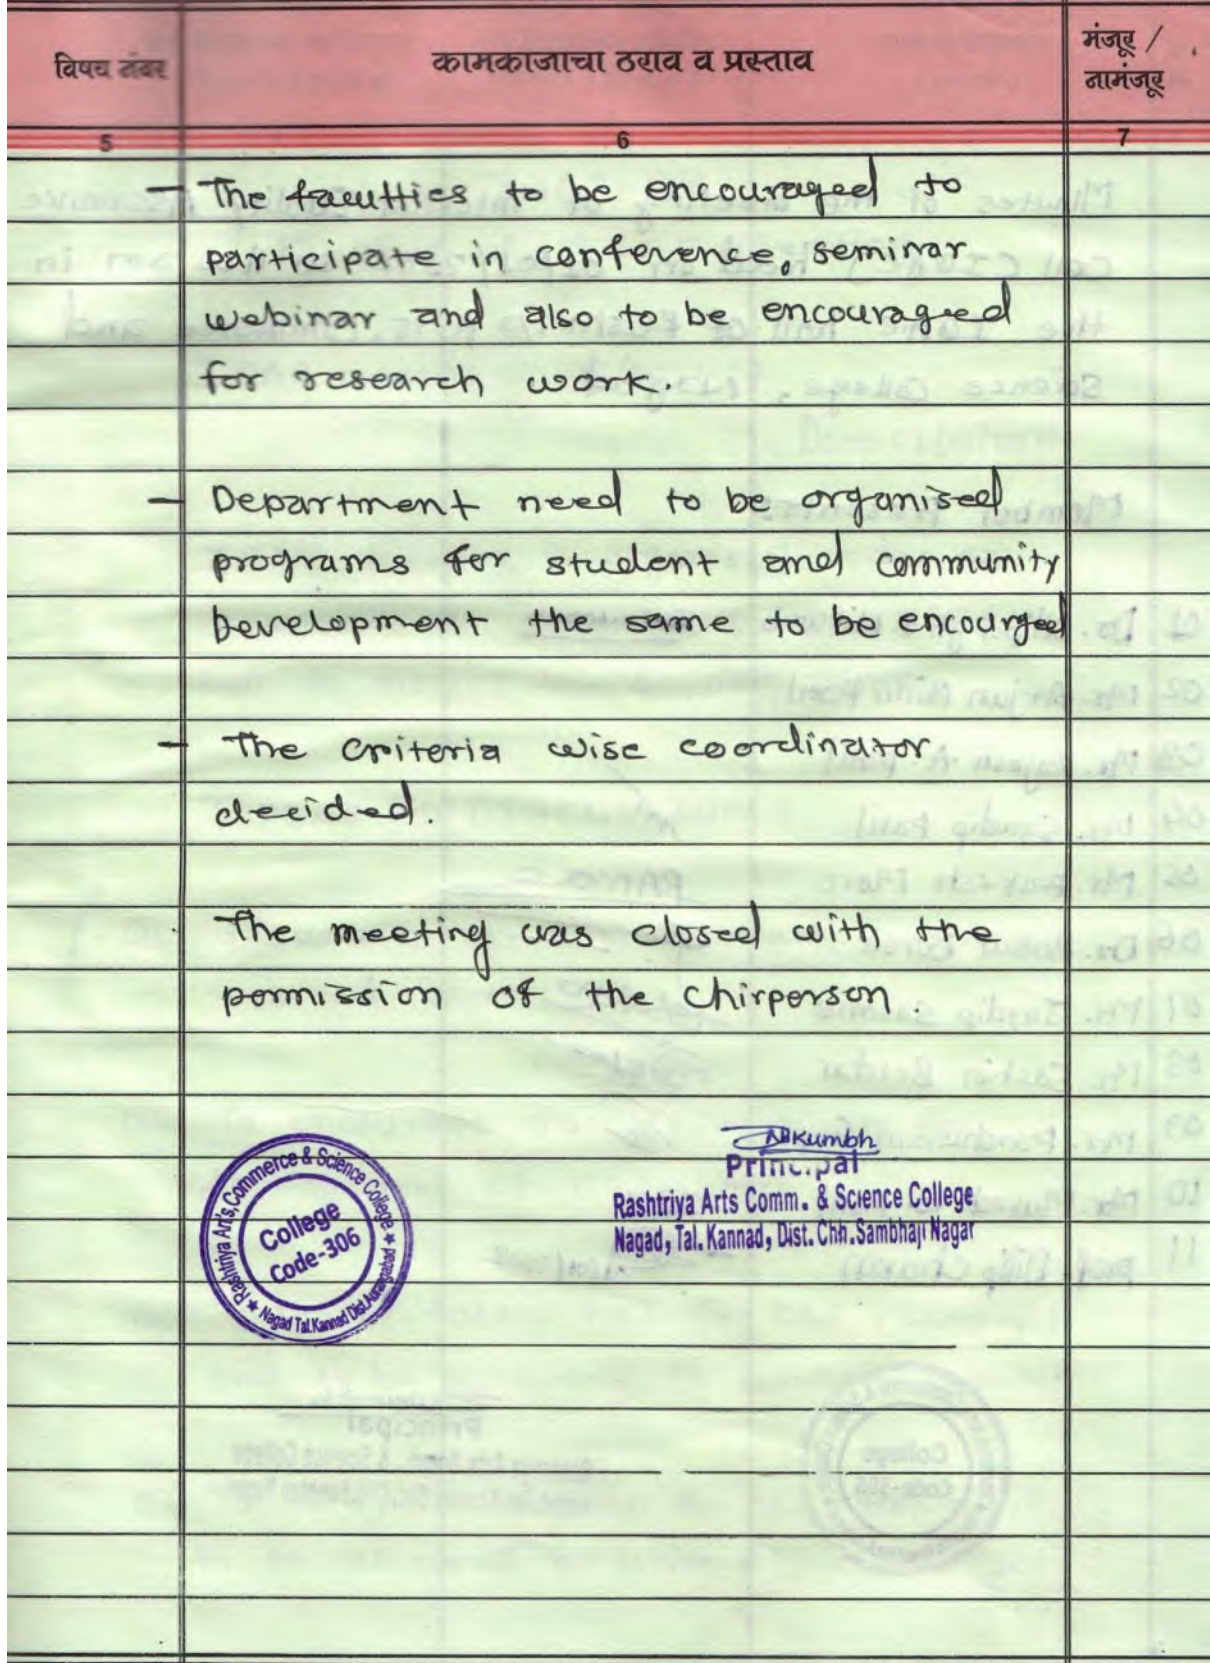 विषय नंबर
कामकाजाचा ठराव व प्रस्ताव
मंजूर /
नामंजूर
5 6 7
- The faculties to be encouraged to
participate in conference, seminar
webinar and also to be encouraged
for research work.
- Department need to be organised
programs for student and community
Development the same to be encourged
- The criteria wise coordinator
decided.
The meeting was closed with the
permission of the chirperson.
Rashtriya Art's, Commerce & Science College
College
Code-306
Nagad Tal.Kannad Dist.Aurangabad
NBKumbh
Principal
Rashtriya Arts Comm. & Science College
Nagad, Tal. Kannad, Dist. Chh.Sambhaji Nagar